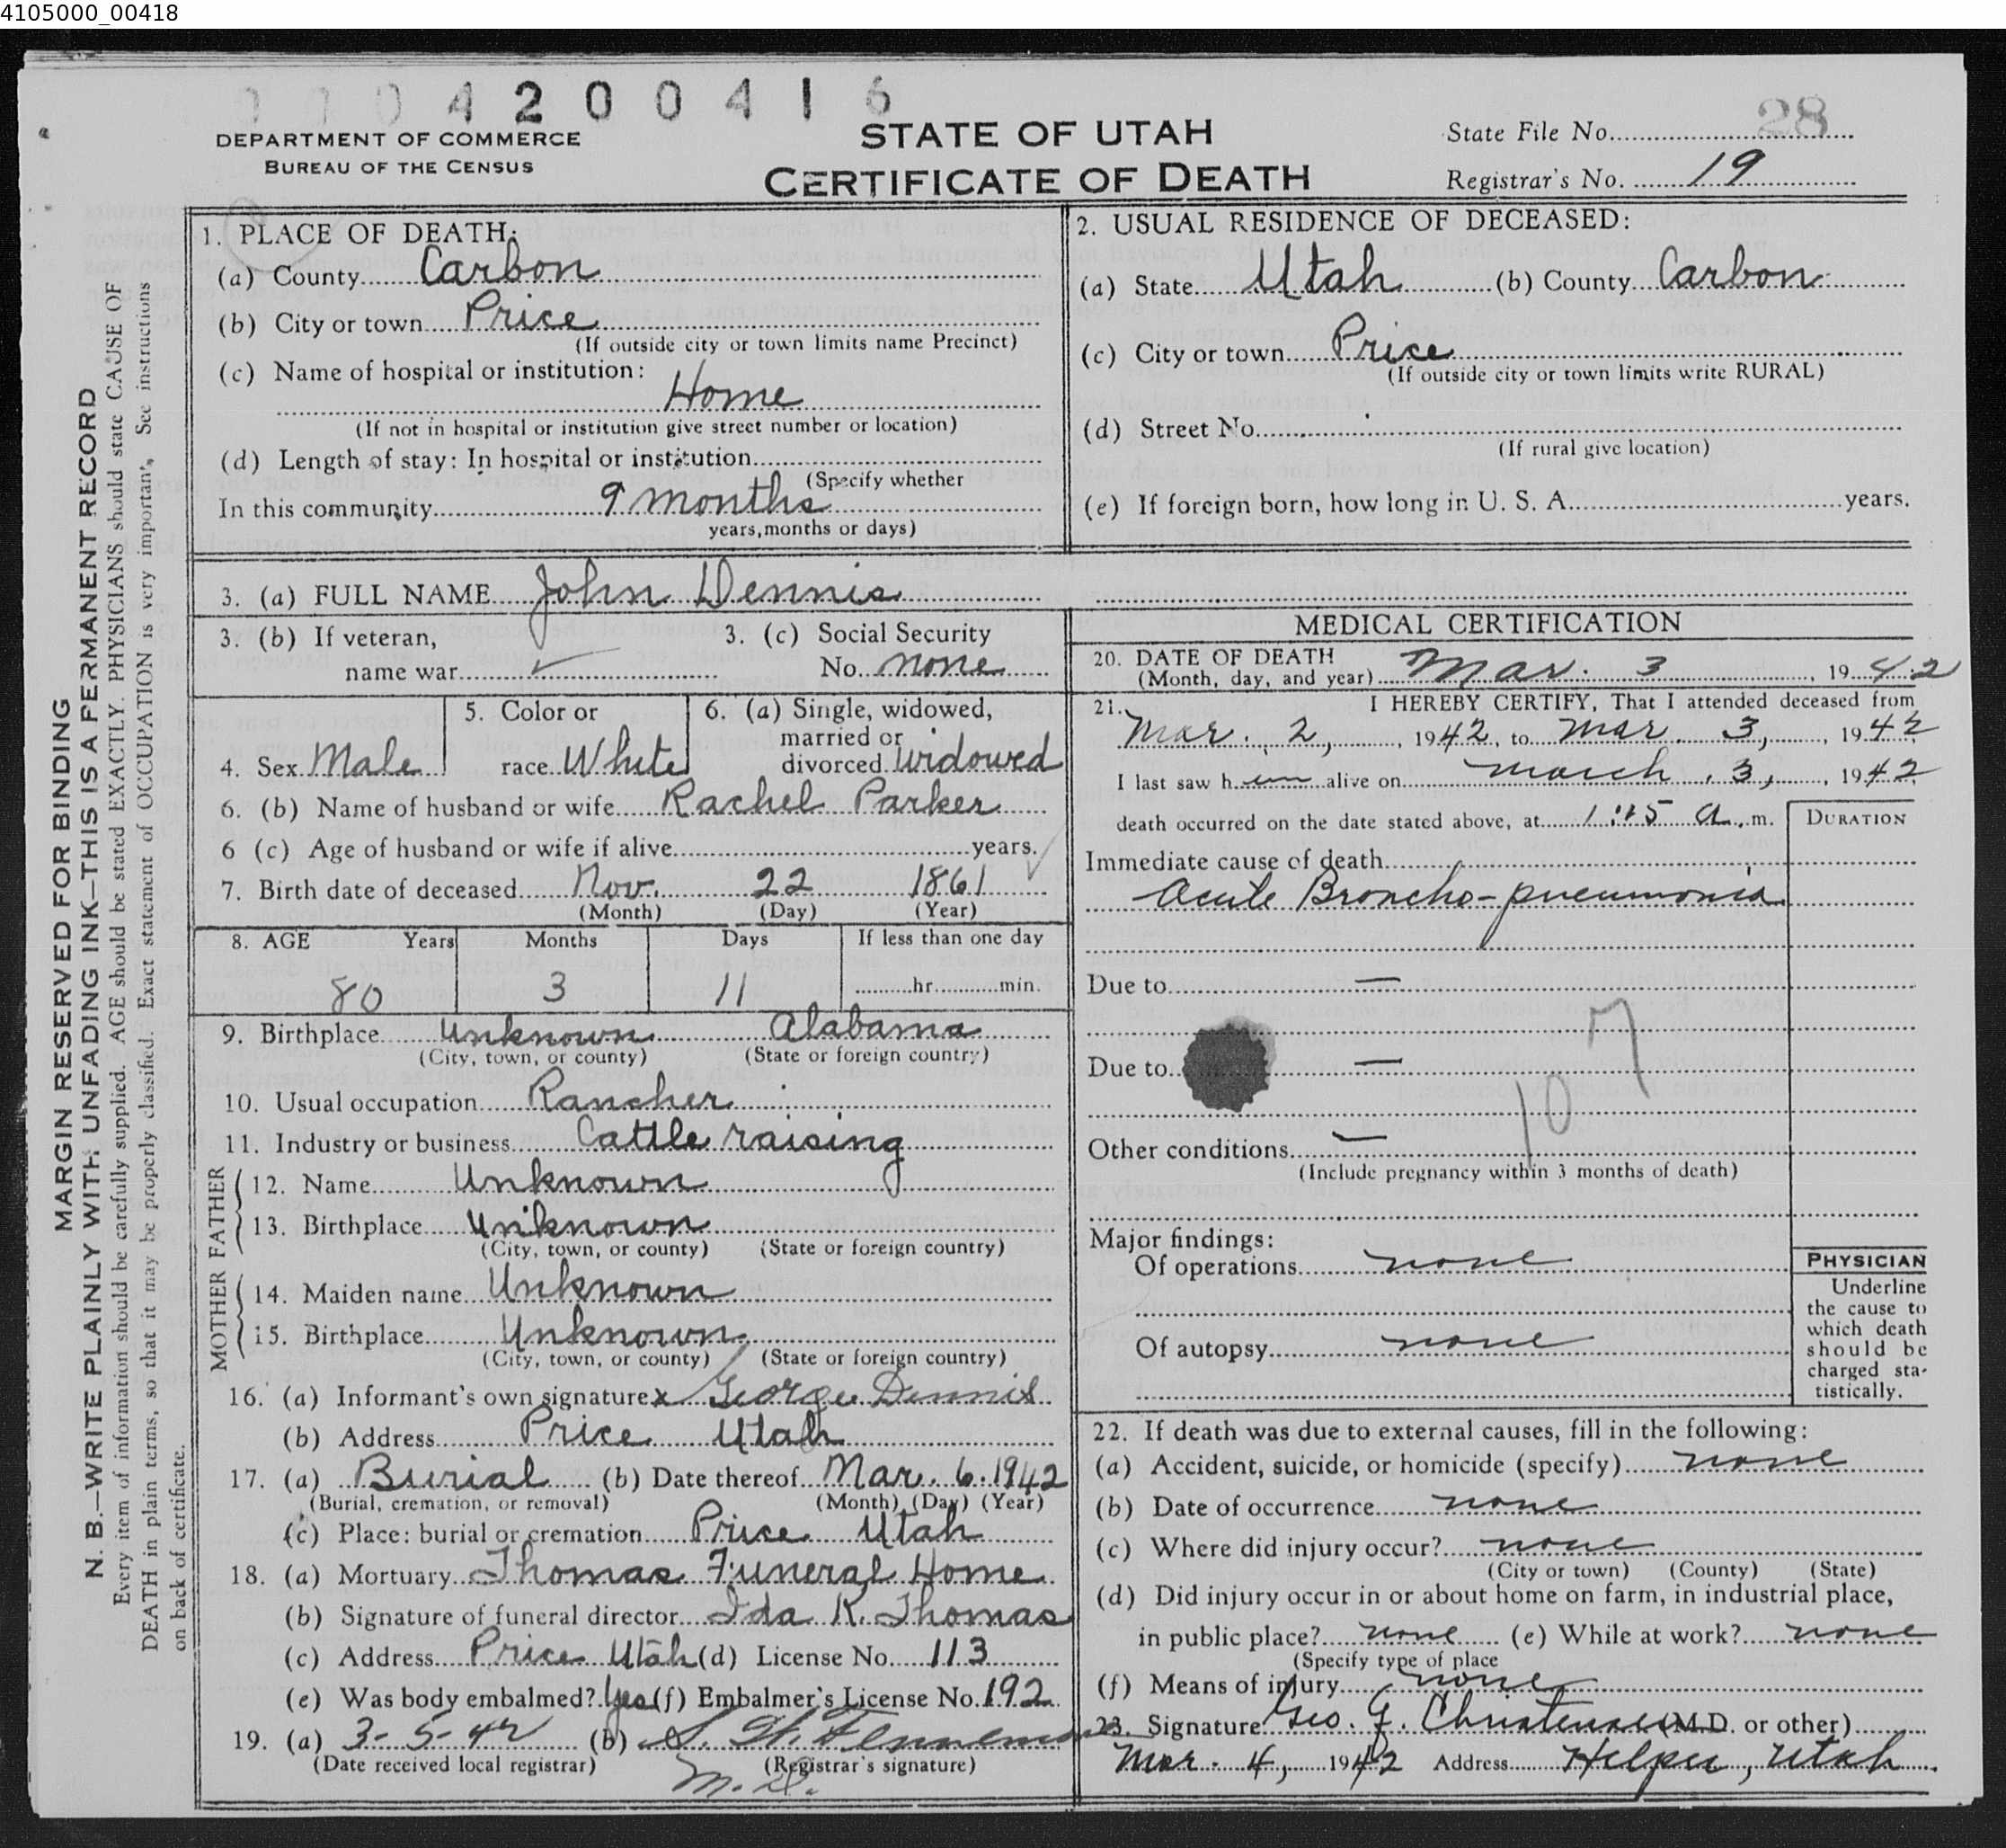 4105000_00418
4 2 0 0 4 1 6
DEPARTMENT OF COMMERCE
BUREAU OF THE CENSUS
STATE OF UTAH
CERTIFICATE OF DEATH
State File No. 28
Registrar's No. 19
MARGIN RESERVED FOR BINDING
N. B.—WRITE PLAINLY WITH UNFADING INK—THIS IS A PERMANENT RECORD
Every item of information should be carefully supplied. AGE should be stated EXACTLY. PHYSICIANS should state CAUSE OF
DEATH in plain terms, so that it may be properly classified. Exact statement of OCCUPATION is very important. See instructions
on back of certificate.
1. PLACE OF DEATH:
(a) County Carbon
(b) City or town Price
(If outside city or town limits name Precinct)
(c) Name of hospital or institution:
Home
(If not in hospital or institution give street number or location)
(d) Length of stay: In hospital or institution
(Specify whether
In this community 9 months
years, months or days)
2. USUAL RESIDENCE OF DECEASED:
(a) State Utah (b) County Carbon
(c) City or town Price
(If outside city or town limits write RURAL)
(d) Street No.
(If rural give location)
(e) If foreign born, how long in U. S. A. years.
3. (a) FULL NAME John Dennis
3. (b) If veteran, 3. (c) Social Security
name war No. none
4. Sex Male
5. Color or
race White
6. (a) Single, widowed,
married or
divorced Widowed
6. (b) Name of husband or wife Rachel Parker
6 (c) Age of husband or wife if alive years.
7. Birth date of deceased Nov. 22 1861
(Month) (Day) (Year)
8. AGE Years Months Days If less than one day
80 3 11 hr. min.
9. Birthplace Unknown Alabama
(City, town, or county) (State or foreign country)
10. Usual occupation Rancher
11. Industry or business Cattle raising
FATHER
12. Name Unknown
13. Birthplace Unknown
(City, town, or county) (State or foreign country)
MOTHER
14. Maiden name Unknown
15. Birthplace Unknown
(City, town, or county) (State or foreign country)
16. (a) Informant's own signature x George Dennis
(b) Address Price Utah
17. (a) Burial (b) Date thereof Mar. 6. 1942
(Burial, cremation, or removal) (Month) (Day) (Year)
(c) Place: burial or cremation Price Utah
18. (a) Mortuary Thomas Funeral Home
(b) Signature of funeral director Ida K. Thomas
(c) Address Price Utah (d) License No. 113
(e) Was body embalmed? Yes (f) Embalmer's License No. 192
19. (a) 3-5-42 (b)
(Date received local registrar) (Registrar's signature)
M.D.
MEDICAL CERTIFICATION
20. DATE OF DEATH
(Month, day, and year) Mar. 3, 1942
21. I HEREBY CERTIFY, That I attended deceased from
Mar. 2, 1942, to Mar. 3, 1942
I last saw him alive on March 3, 1942
death occurred on the date stated above, at 1:15 a. m.
DURATION
Immediate cause of death
Acute Broncho-pneumonia
Due to —
Due to —
107
Other conditions —
(Include pregnancy within 3 months of death)
Major findings:
Of operations none
Of autopsy none
PHYSICIAN
Underline
the cause to
which death
should be
charged sta-
tistically.
22. If death was due to external causes, fill in the following:
(a) Accident, suicide, or homicide (specify) none
(b) Date of occurrence none
(c) Where did injury occur? none
(City or town) (County) (State)
(d) Did injury occur in or about home on farm, in industrial place,
in public place? none (e) While at work? none
(Specify type of place
(f) Means of injury none
23. Signature Geo. G. Christensen (M.D. or other)
Mar. 4, 1942 Address Helper, Utah